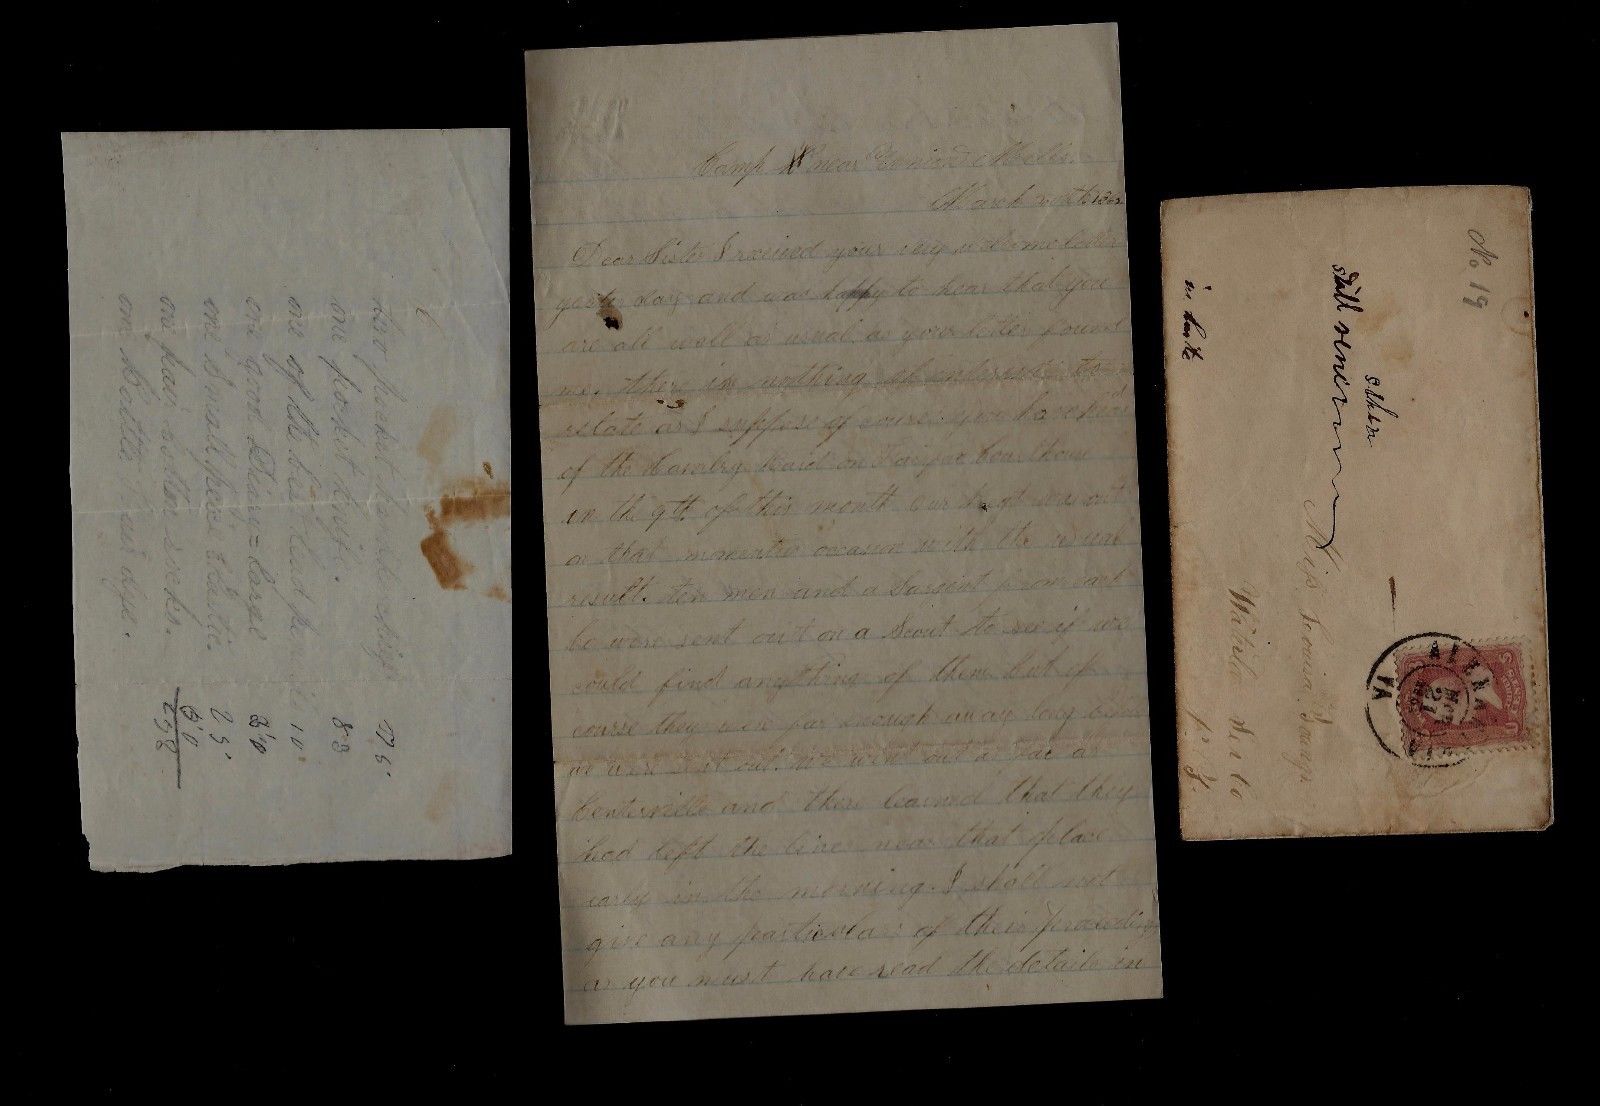 two pocket handkerchiefs 75
one pocket knife. 83
one of the best lead pencils 10
one good Diary = large 50
one small piece Elastic. 25
one pair cotton socks. 50
one bottle hair dye.
Camp near Mills.
March 1863
Dear Sister I received your very welcome letter
yesterday and was happy to hear that you
are all well as usual as your letter found
me. there is nothing of interest to
relate as I suppose of course you have heard
of the Cavalry Raid on Fairfax Court house
on the 9th of this month Our was out
on that occasion with the usual
result. ten men and a Sargent from each
Co were sent out on a Scout to see if we
could find anything of them but of
course they were far enough away long before
we were sent out. we went out as far as
Centerville and there learned that they
had left the lines near that place
early in the morning. I shall not
give any particulars of their proceedings
as you must have read the details in
No 19
in haste
Miss Louisa
ALEXANDRIA
VA
21